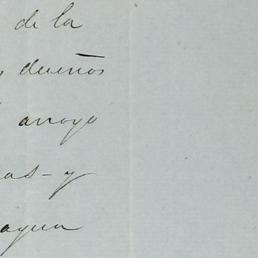 de la
dueños
arroyo
as - y
agua